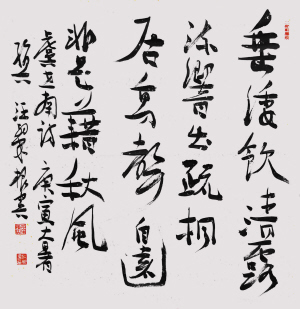 垂緌饮清露
流響出疏桐
居高聲自遠
非是藉秋風
虞世南詩 庚寅大暑